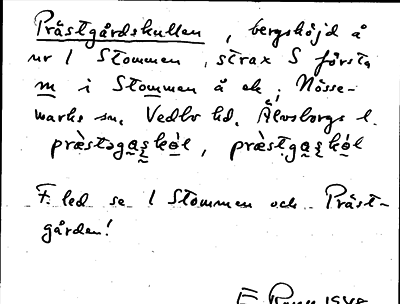 Prästgårdskullen, bergshöjd å
nr 1 Stommen, strax S första
m i Stommen å ek; Nösse-
marks sn, Vedbo hd, Älvsborgs l.
præ̀stəga̱ʂko̱l, præ̀stga̱ʂko̱l
F. led se 1 Stommen och Präst-
gården!
1948